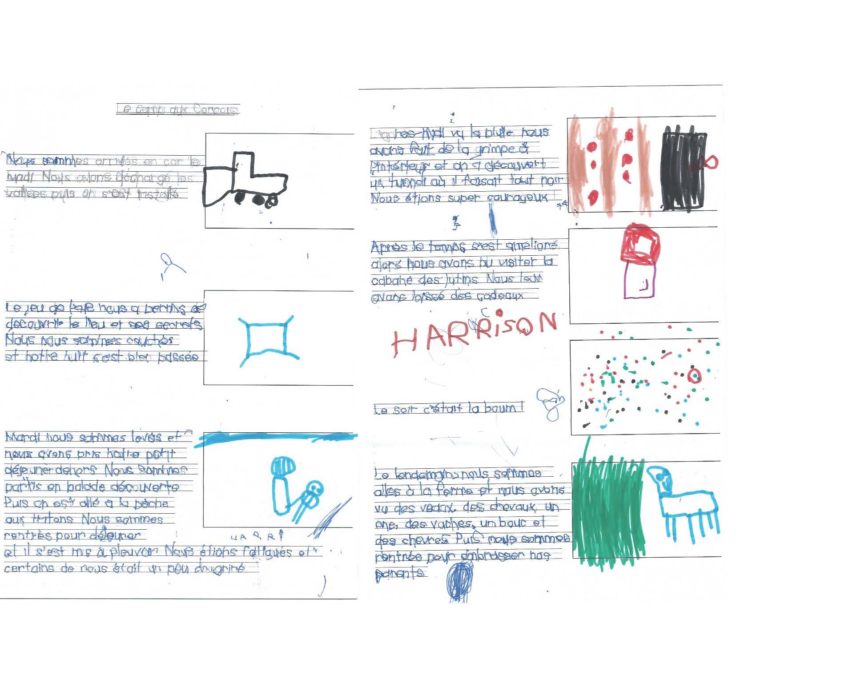 Le camp aux
Nous sommes arrivés en car le
lundi Nous avons déchargé les
valises puis on s'est installé
Le jeu de nous a permis de
découvrir le lieu et ses secrets
Nous nous sommes couchés
et notre nuit s'est bien passée
Mardi nous sommes levés et
nous avons pris notre petit
déjeuner dehors Nous sommes
partis en balade découverte
Puis on est allé à la pêche
aux tritons Nous sommes
rentrés pour déjeuner
et il s'est mis à pleuvoir Nous étions fatigués et
certains de nous était un peu
vu la pluie nous
avons fait de la grimpe à
l'intérieur et on a découvert
un tunnel où il faisait tout noir
Nous étions super courageux
Après le temps s'est amélioré
alors nous avons pu visiter la
cabane des lutins Nous leur
avons laissé des cadeaux
HARRISON
Le soir c'était la boum!
Le lendemain nous sommes
allés à la ferme et nous avons
vu des veaux, des chevaux, un
âne, des vaches, un bouc et
des chèvres Puis nous sommes
rentrés pour embrasser nos
parents